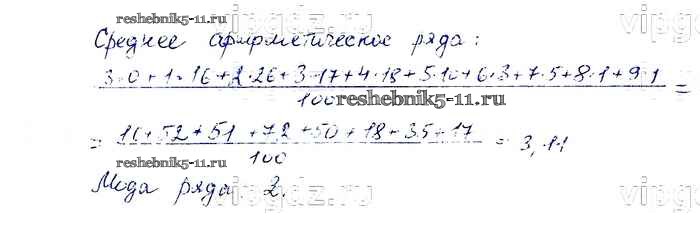 reshebnik5-11.ru
Среднее арифметическое ряда:
3·0+1·16+2·26+3·17+4·18+5·10+6·3+7·5+8·1+9·1
100
=
reshebnik5-11.ru
= 16+52+51+72+50+18+35+17
100
= 3,11
reshebnik5-11.ru
Мода ряда 2.
vipgdz.ru